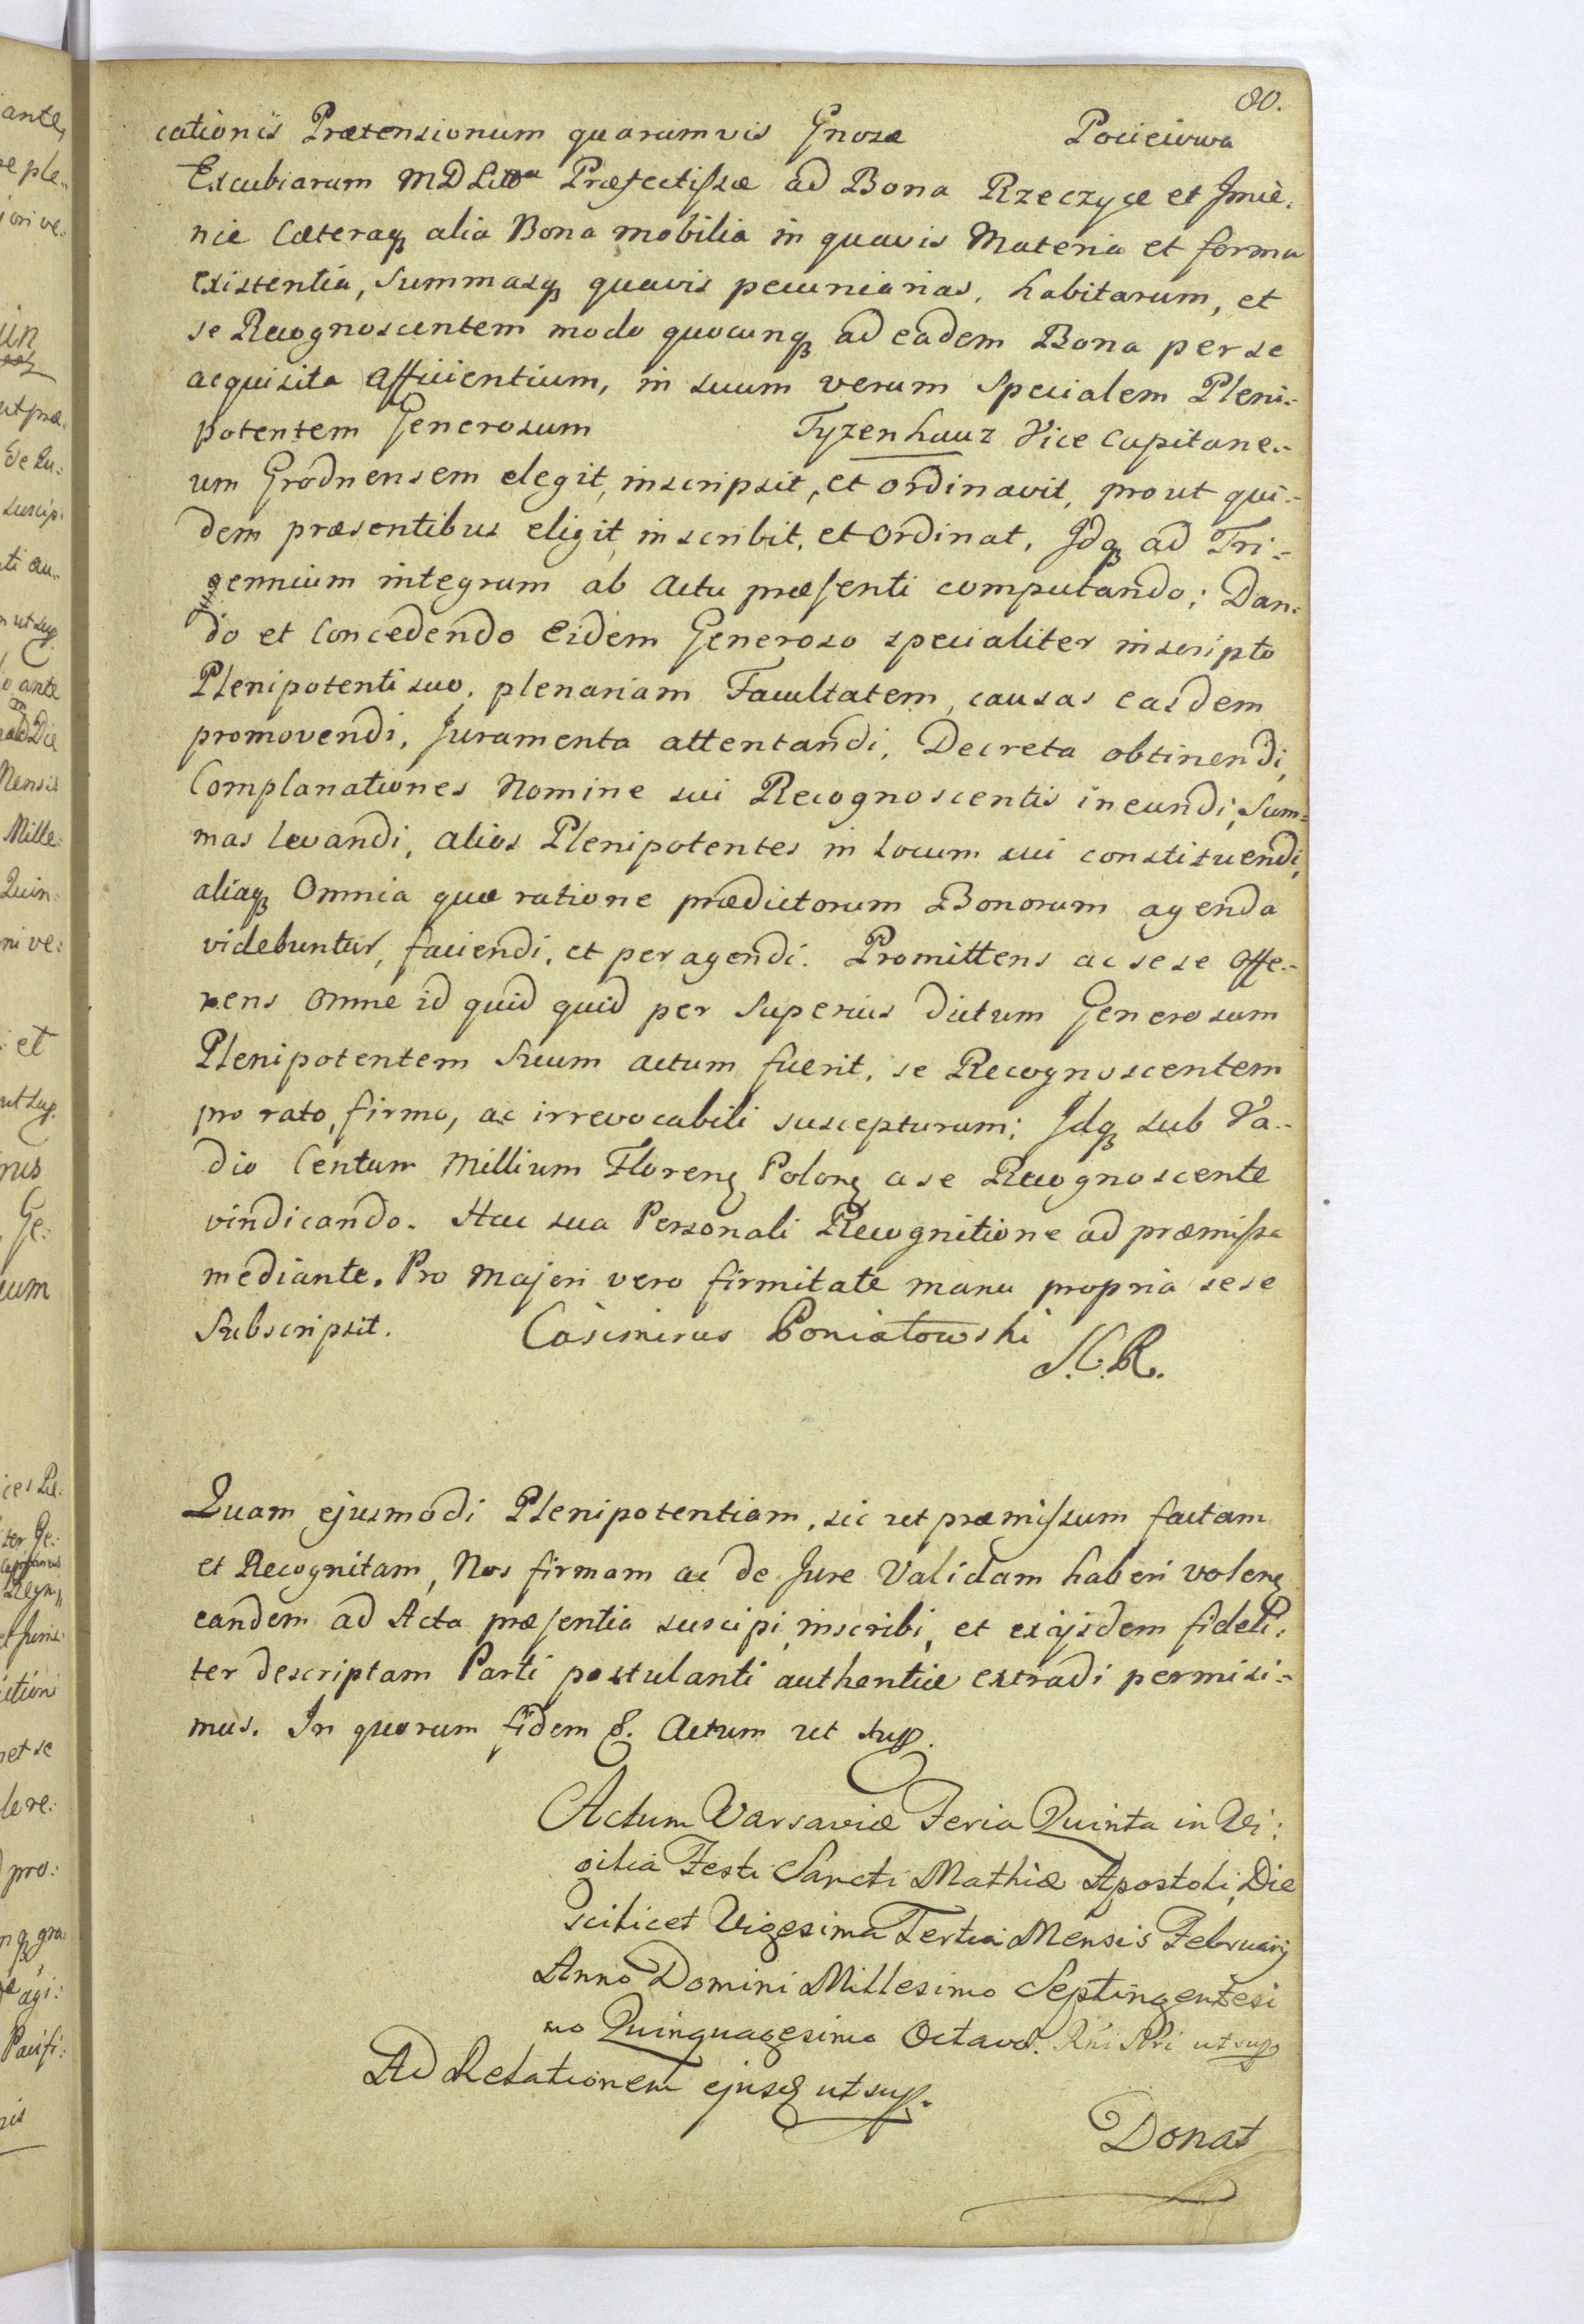 80.
cationis Prætensionum quarumvis Gnosæ Pocieiowa
Excubiarum MD Litt Præfectissæ ad Bona Rzeczyce et Jmie-
nie Cæteraqꝫ alia Bona mobilia in quavis Materia et forma
existentia, Summasqꝫ quavis pecuniarias, habitarum, et
se Recognoscentem modo quocunqꝫ ad eadem Bona per se
acquisita afficientium, in suum verum Specialem Pleni-
potentem Generosum Tyzenhauz Vice Capitane-
um Grodnensem elegit, inscripsit, et ordinavit, prout qui-
dem præsentibus eligit, inscribit, et Ordinat, Jdqꝫ ad Tri-
gennium integrum ab Actu præsenti computando; Dan-
do et Concedendo Eidem Generoso specialiter inscripto
Plenipotenti suo, plenariam Facultatem, causas easdem
promovendi, Juramenta attentandi, Decreta obtinendi,
Complanationes Nomine sui Recognoscentis ineundi, Sum-
mas levandi, alios Plenipotentes in Locum sui constituendi,
aliaqꝫ Omnia quæ ratione prædictorum Bonorum agenda
videbuntur, faciendi, et peragendi. Promittens ac sese offe-
rens omne id quid quid per Superius dictum Generosum
Plenipotentem Suum actum fuerit, se Recognoscentem
pro rato, firmo, ac irrevocabili suscepturum; Jdqꝫ sub Va-
dio Centum Millium Florenꝫ Polonꝫ a se Recognoscente
vindicando. Hac sua Personali Recognitione ad præmissa
mediante. Pro majori vero firmitate manu propria sese
Subscripsit. Casimirus Poniatowski
S.C.R.
Quam ejusmodi Plenipotentiam, sic ut præmissum factam
et Recognitam, Nos firmam ac de Jure Validam haberi volenꝫ
eandem ad Acta præsentia suscipi, inscribi, et ex ijsdem fideli-
ter descriptam Parti postulanti authentice extradi permisi-
mus. In quorum fidem &. Actum ut sup.
Actum Varsaviæ Feria Quinta in Vi:
gilia Festi Sancti Mathiæ Apostoli, Die
scilicet Vigesima Tertia Mensis Februarij
Anno Domini Millesimo Septingentesi
mo Quinquagesimo Octavo. Rni Sttri ut sup
Ad Relationem ejusd ut sup.
Donat